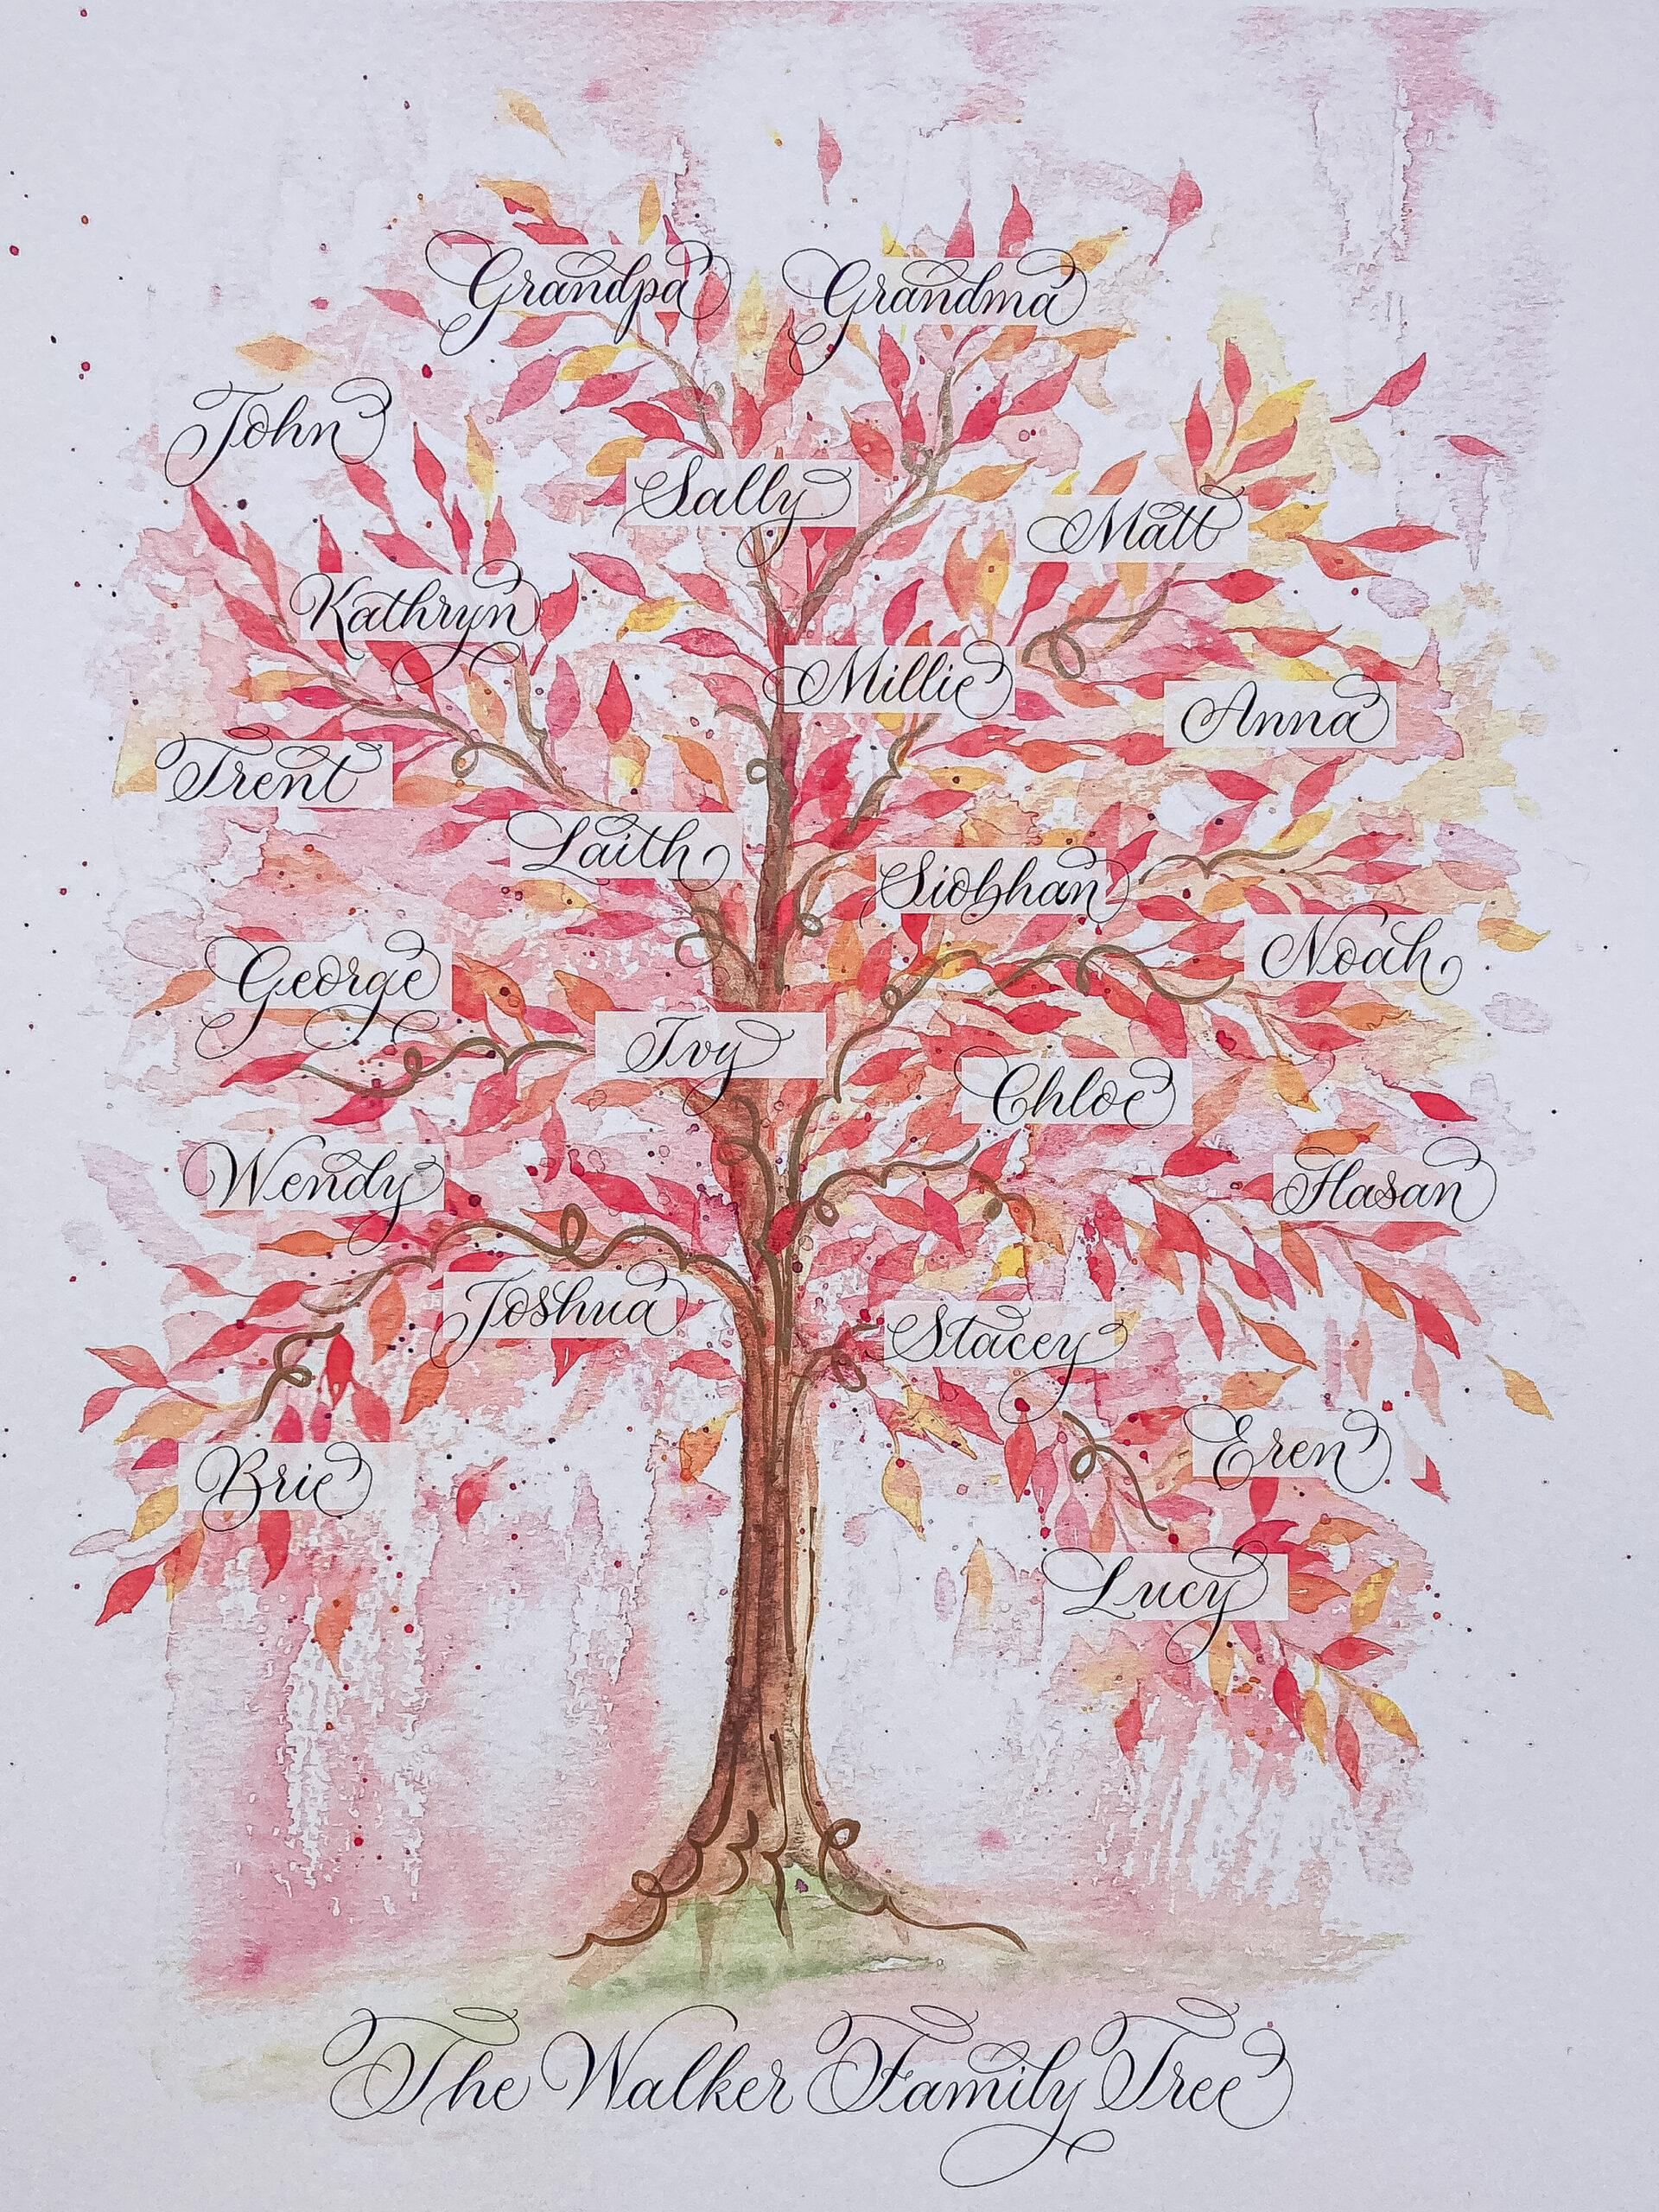 Grandpa Grandma
John
Sally
Matt
Kathryn
Millie
Anna
Trent
Laith
Siobhan
Noah
George
Ivy
Chloe
Wendy
Hasan
Joshua
Stacey
Eren
Brie
Lucy
The Walker Family Tree